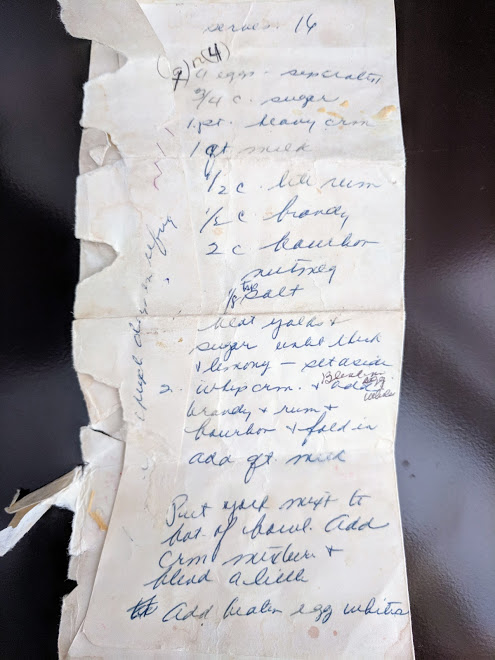 serves 16
(9) or (4)
9 eggs - separated
3/4 c. sugar
1 pt. heavy crm
1 qt milk
1/2 c. lite rum
1/2 c brandy
2 c bourbon
nutmeg
1/8 tsp salt
beat yolks &
sugar until thick
& lemony - set aside
2. whip crm. &
egg
brandy & rum &
bourbon & fold in
add qt. milk
Put yolk mixt to
bot. of bowl. Add
crm mixture &
blend a little
Add beaten egg whites
in refrig